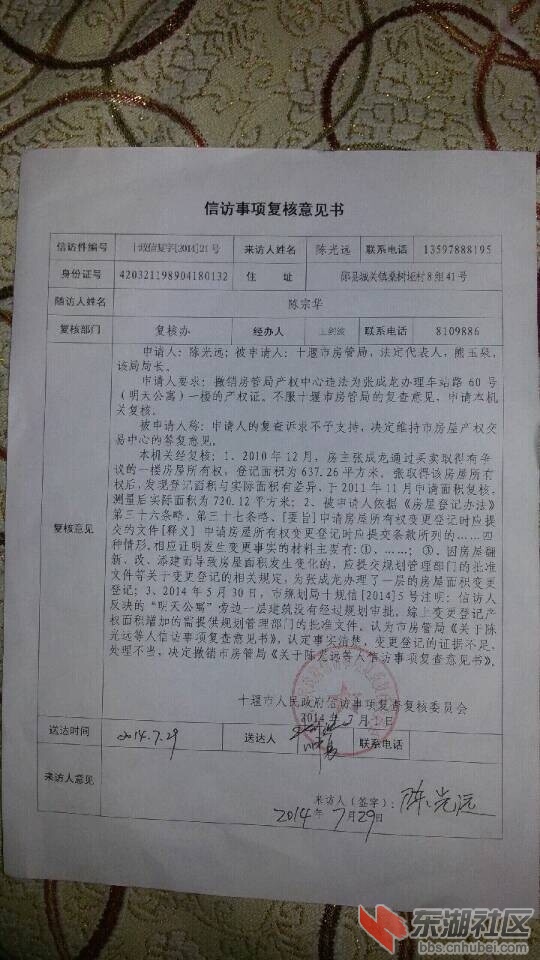 信访事项复核意见书
信访件编号 十政信复字[2014]21号 来访人姓名 陈光远 联系电话 13597888195
身份证号 420321198904180132 住 址 郧县城关镇桑树垭村8组41号
随访人姓名 陈宗华
复核部门 复核办 经办人 联系电话 8109886
复核意见
申请人：陈光远；被申请人：十堰市房管局，法定代表人，熊玉泉，
该局局长。
申请人要求：撤销房管局产权中心违法为张成龙办理车站路60号
（明天公寓）一楼的产权证。不服十堰市房管局的复查意见，申请本机
关复核。
被申请人称：申请人的复查诉求不予支持，决定维持市房屋产权交
易中心的答复意见。
本机关经复核：1、2010年12月，房主张成龙通过买卖取得有争
议的一楼房屋所有权，登记面积为637.26平方米，张取得该房屋所有
权后，发现登记面积与实际面积有差异，于2011年11月申请面积复核，
测量后实际面积为720.12平方米；2、被申请人依据《房屋登记办法》
第三十六条略、第三十七条略、[要旨]申请房屋所有权变更登记时应提
交的文件[释义] 申请房屋所有权变更登记时应提交条款所列的……四
种情形，相应证明发生变更事实的材料主要有：①、……；③、因房屋翻
新、改、添建而导致房屋面积发生变化的，应提交规划管理部门的批准
文件等关于变更登记的相关规定，为张成龙办理了一层的房屋面积变更
登记；3、2014年5月30日，市规划局十规信[2014]5号注明：信访人
反映的“明天公寓”旁边一层建筑没有经过规划审批。综上变更登记产
权面积增加的需提供规划管理部门的批准文件。认为市房管局《关于陈
光远等人信访事项复查意见书》，认定事实清楚，变更登记的证据不足、
处理不当，决定撤销市房管局《关于陈光远等人信访事项复查意见书》。
十堰市人民政府信访事项复查复核委员会
2014年 月 日
送达时间 2014.7.29 送达人 联系电话
来访人意见
来访人（签字）：陈光远
2014年7月29日
东湖社区
bbs.cnhubei.com